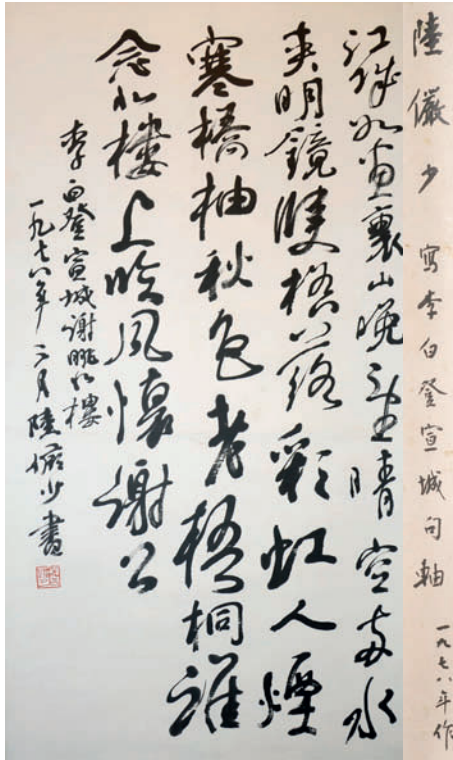 陸儼少 寫李白登宣城句軸
一九七八年作
江城如畫裏山晚望晴空兩水
夾明鏡雙橋落彩虹人煙
寒橘柚秋色老梧桐誰
念北樓上臨風懷謝公
李白登宣城謝眺北樓
一九七八年二月陸儼少書